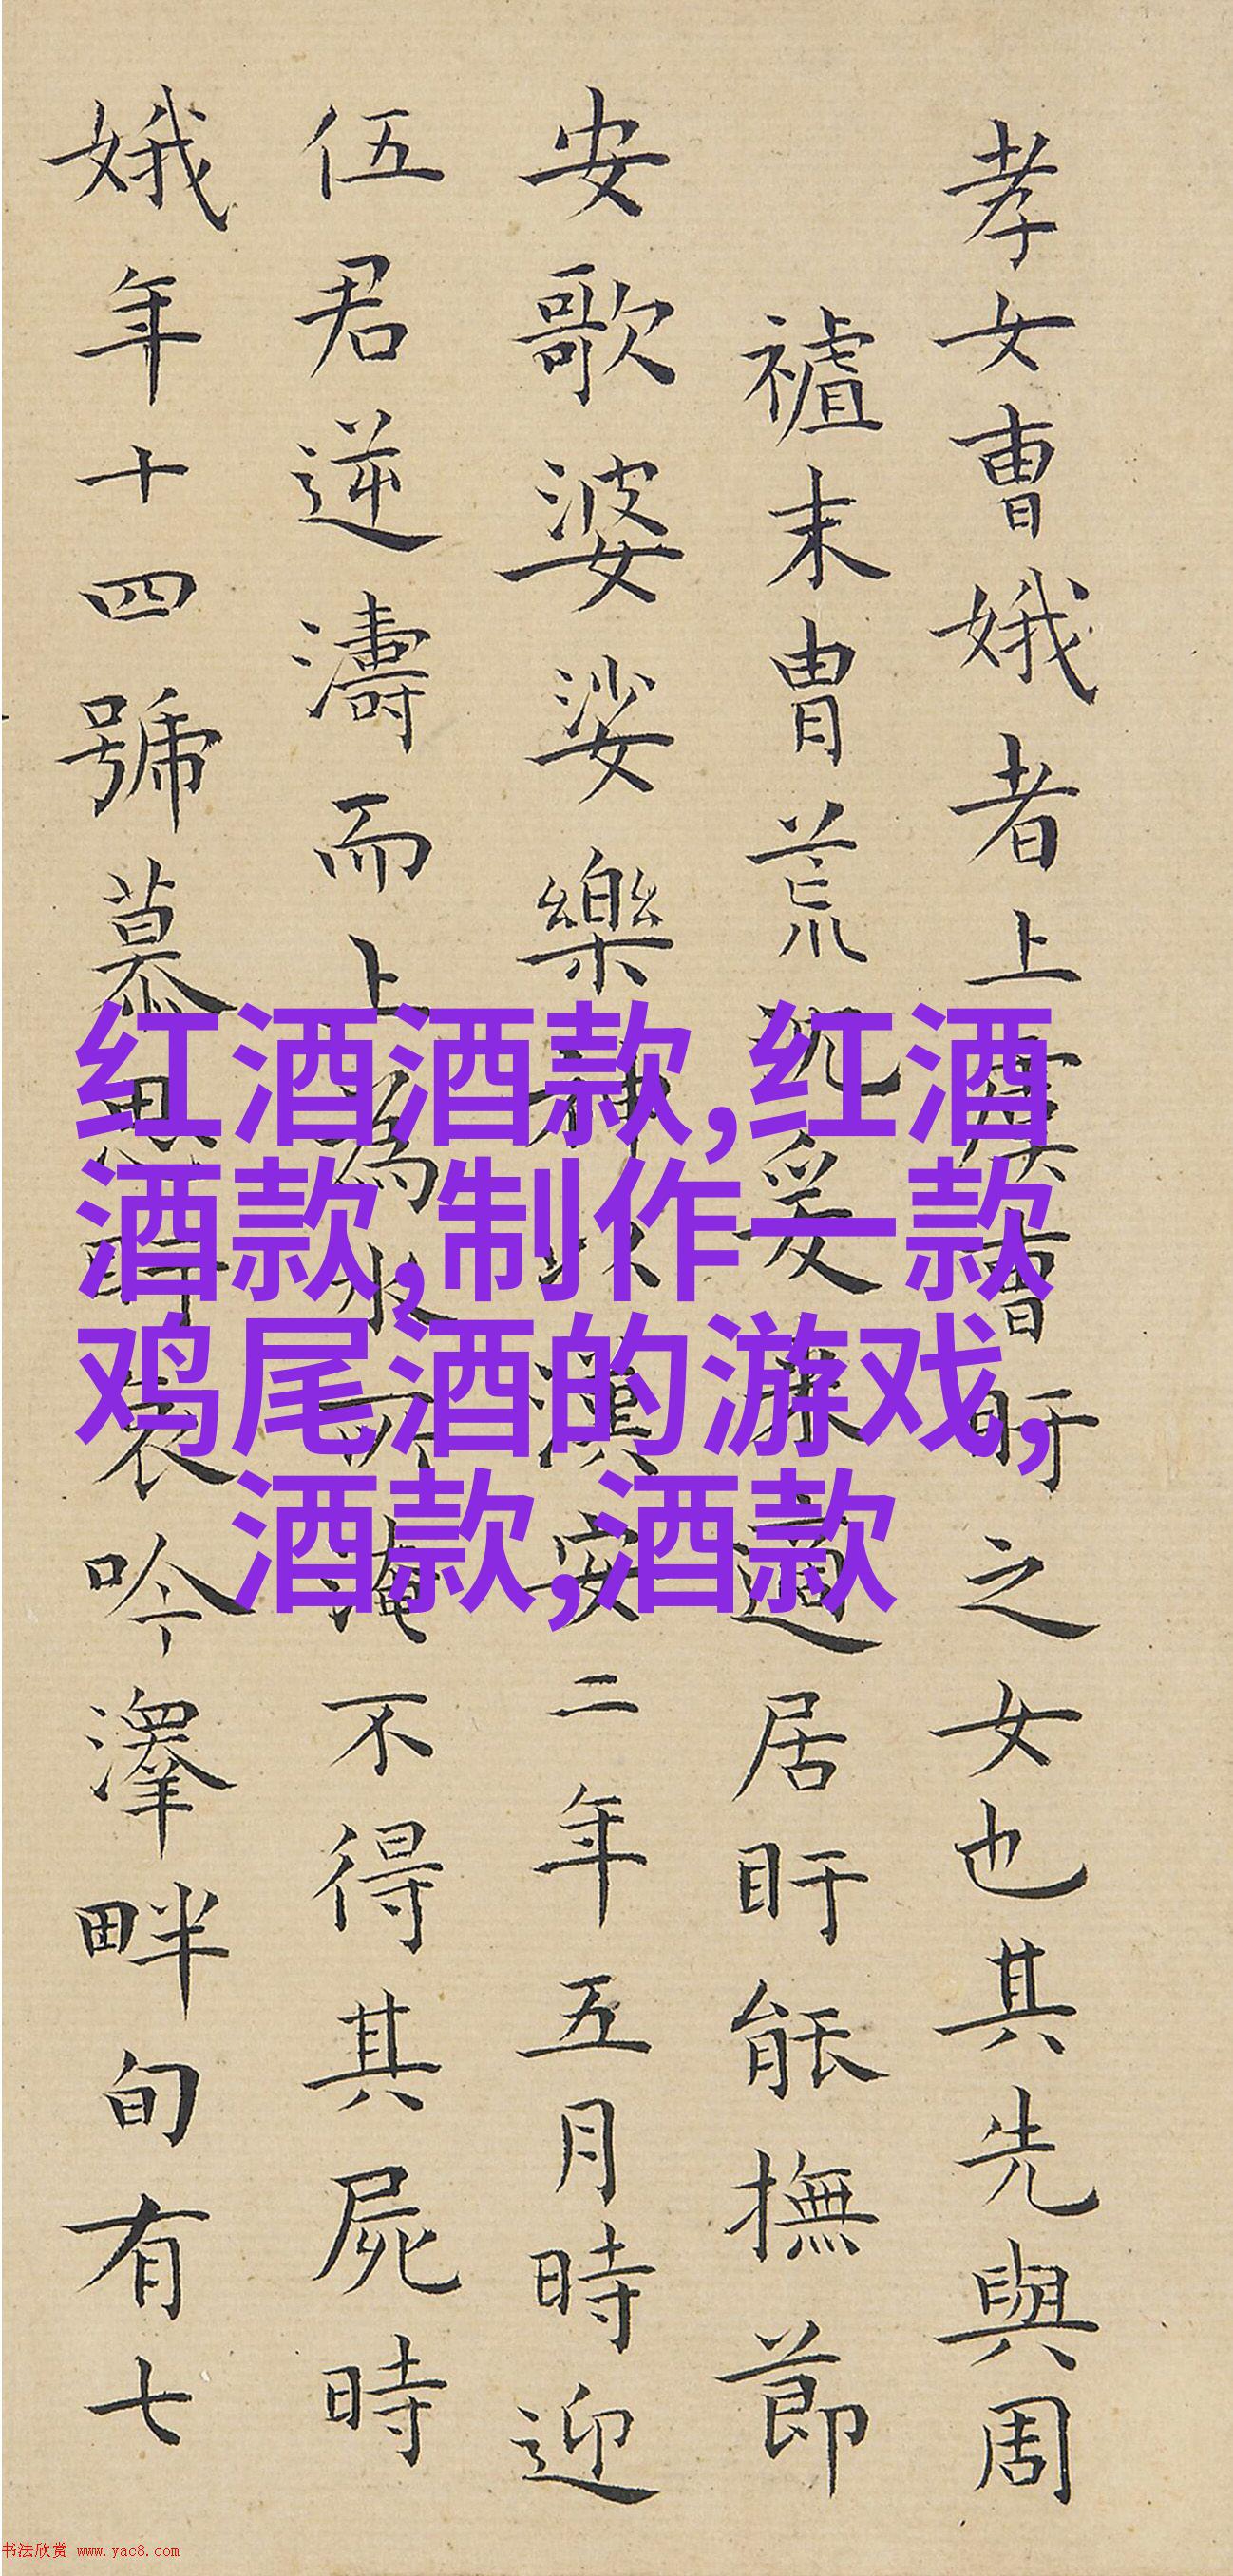 孝女曹娥者上虞曹盱之女也其先與周
禮末胄荒沉爰來適居盱能撫節
安歌婆娑樂神以漢安二年五月時迎
伍君逆濤而上為水所淹不得其屍時
娥年十四號慕思盱哀吟澤畔旬有七
红酒酒款,红酒
酒款,制作一款
鸡尾酒的游戏,
酒款,酒款
书法欣赏 www.yac8.com